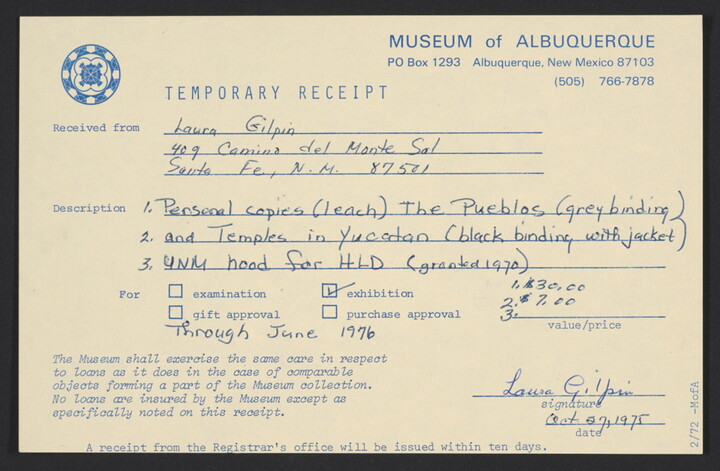 MUSEUM of ALBUQUERQUE
PO Box 1293 Albuquerque, New Mexico 87103
(505) 766-7878
TEMPORARY RECEIPT
Received from Laura Gilpin
409 Camino del Monte Sol
Santa Fe, N.M. 87501
Description 1. Personal copies (1 each) The Pueblos (grey binding)
2. and Temples in Yucatan (black binding with jacket)
3. UNM hood for HLD (granted 1970)
For examination exhibition 1. $30.00
2. $7.00
gift approval purchase approval 3.
Through June 1976 value/price
The Museum shall exercise the same care in respect
to loans as it does in the case of comparable
objects forming a part of the Museum collection.
No loans are insured by the Museum except as
specifically noted on this receipt.
Laura Gilpin
signature
Oct 27, 1975
date
A receipt from the Registrar's office will be issued within ten days.
2/72 -MofA